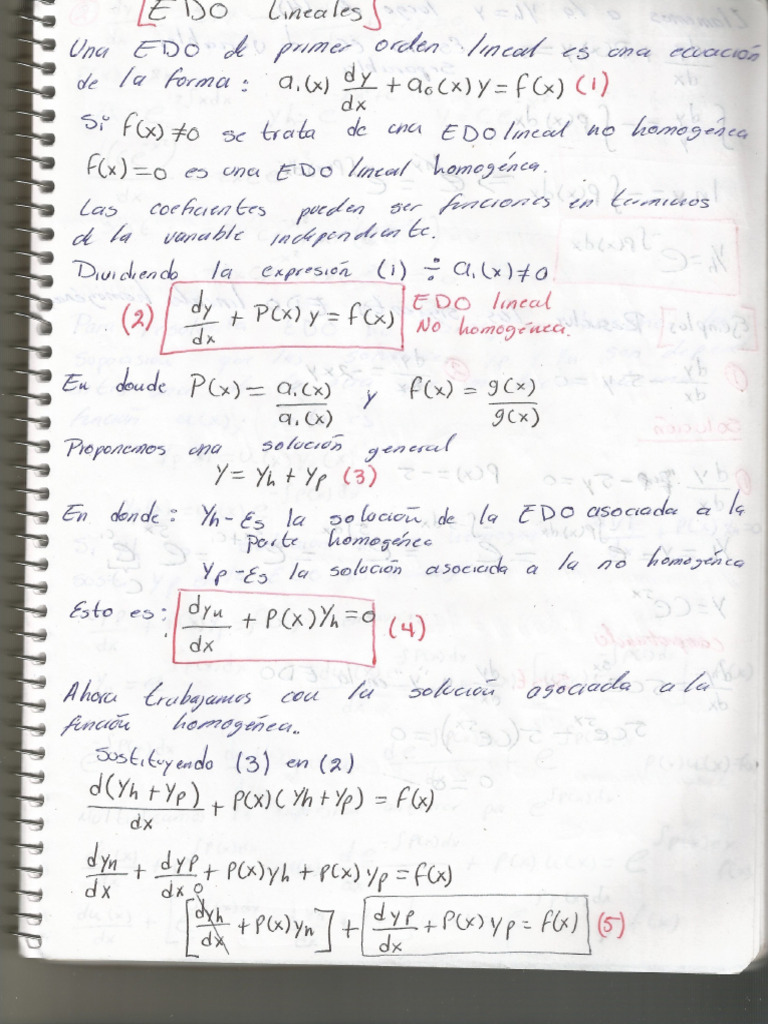 [EDO Lineales]
Una EDO de primer orden lineal es una ecuación
de la forma: a₁(x) dy/dx + a₀(x)y = f(x) (1)
Si f(x)≠0 se trata de una EDO lineal no homogénea
f(x)=0 es una EDO lineal homogénea.
Las coeficientes pueden ser funciones en terminos
de la variable independiente.
Dividiendo la expresión (1) ÷ a₁(x)≠0
(2) dy/dx + P(x)y = f(x) EDO lineal
No homogénea.
En donde P(x) = a₁(x)/a₁(x) y f(x) = g(x)/g(x)
Proponemos una solución general
Y = Yh + Yp (3)
En donde: Yh - Es la solución de la EDO asociada a la
parte homogénea
Yp - Es la solución asociada a la no homogénea
Esto es: dyh/dx + P(x)Yh = 0 (4)
Ahora trabajamos con la solución asociada a la
función homogénea..
Sustituyendo (3) en (2)
d(Yh + Yp)/dx + P(x)(Yh + Yp) = f(x)
dyh/dx + dyp/dx + P(x)yh + P(x)yp = f(x)
[dyh/dx + P(x)yh] 0 + dyp/dx + P(x)yp = f(x) (5)